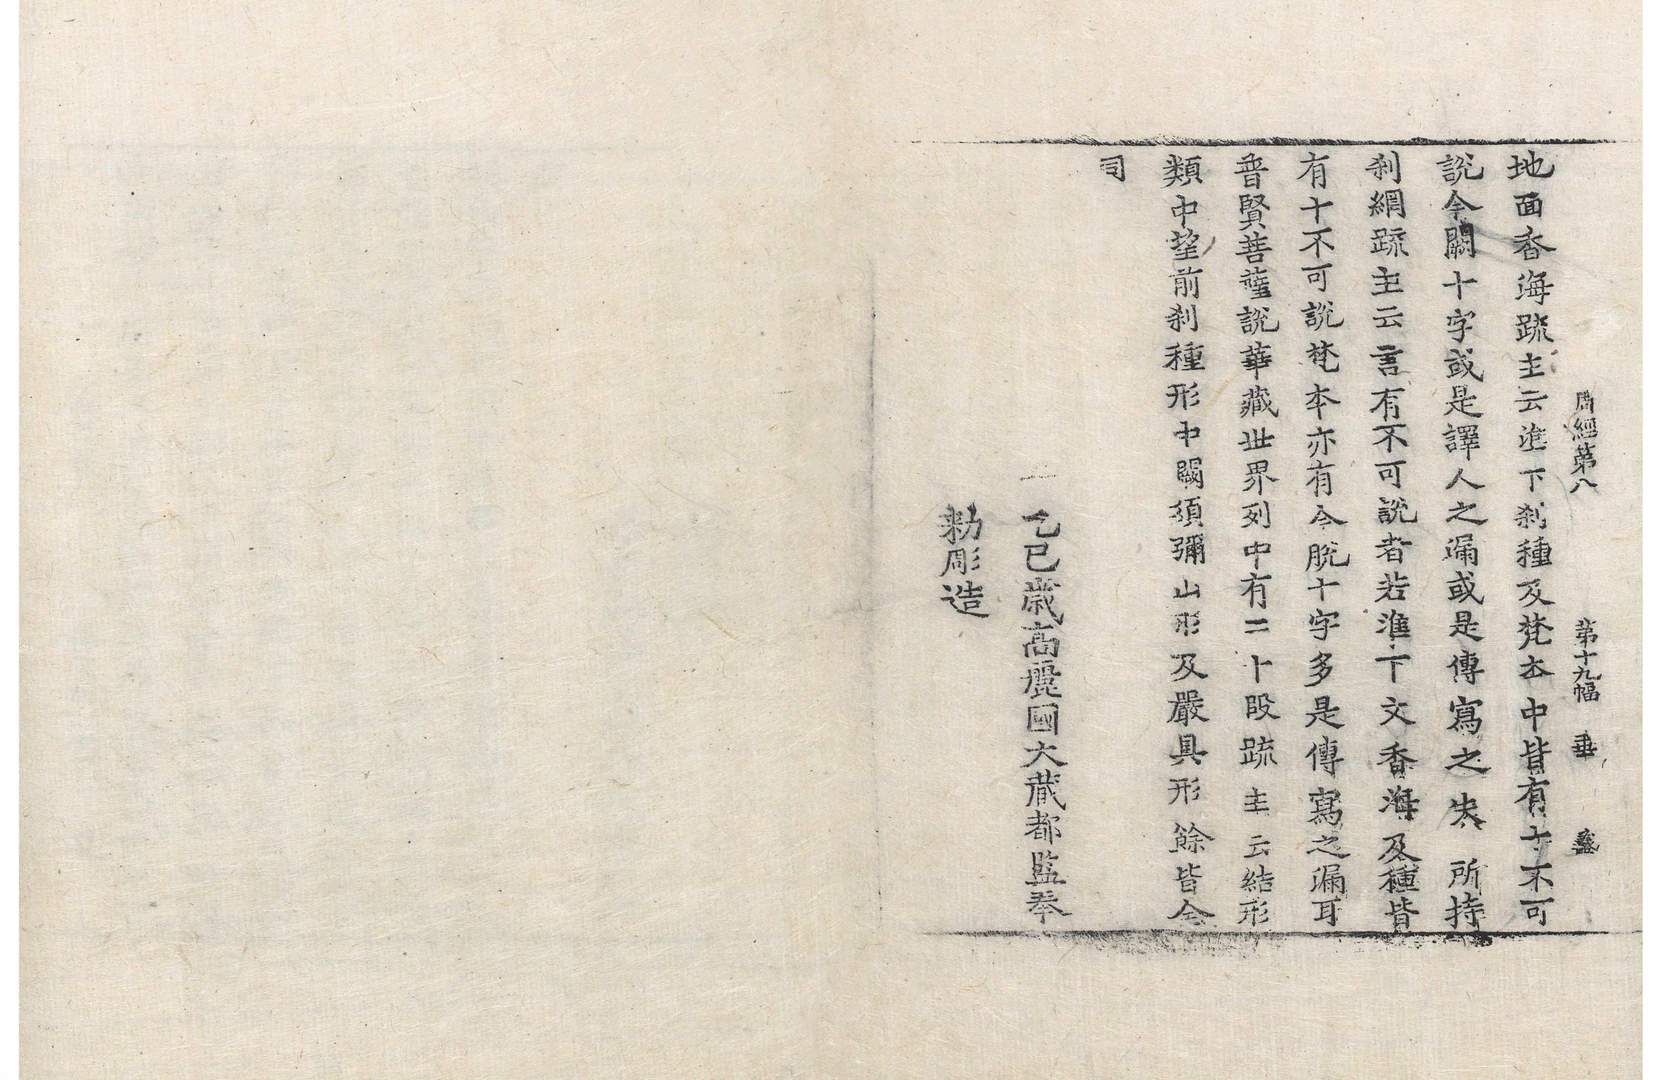 周經第八 第十九幅 垂
地面香海䟽主云准下刹種及梵本中皆有十不可
說今闕十字或是譯人之漏或是傳寫之失 所持
刹網䟽主云言有不可說者若准下文香海及種皆
有十不可說梵本亦有今脫十字多是傳寫之漏耳
普賢菩薩說華藏世界列中有二十段䟽主云結形
類中望前刹種形中闕須彌山形及嚴具形餘皆全
同
乙巳歲高麗國大藏都監奉
勑彫造